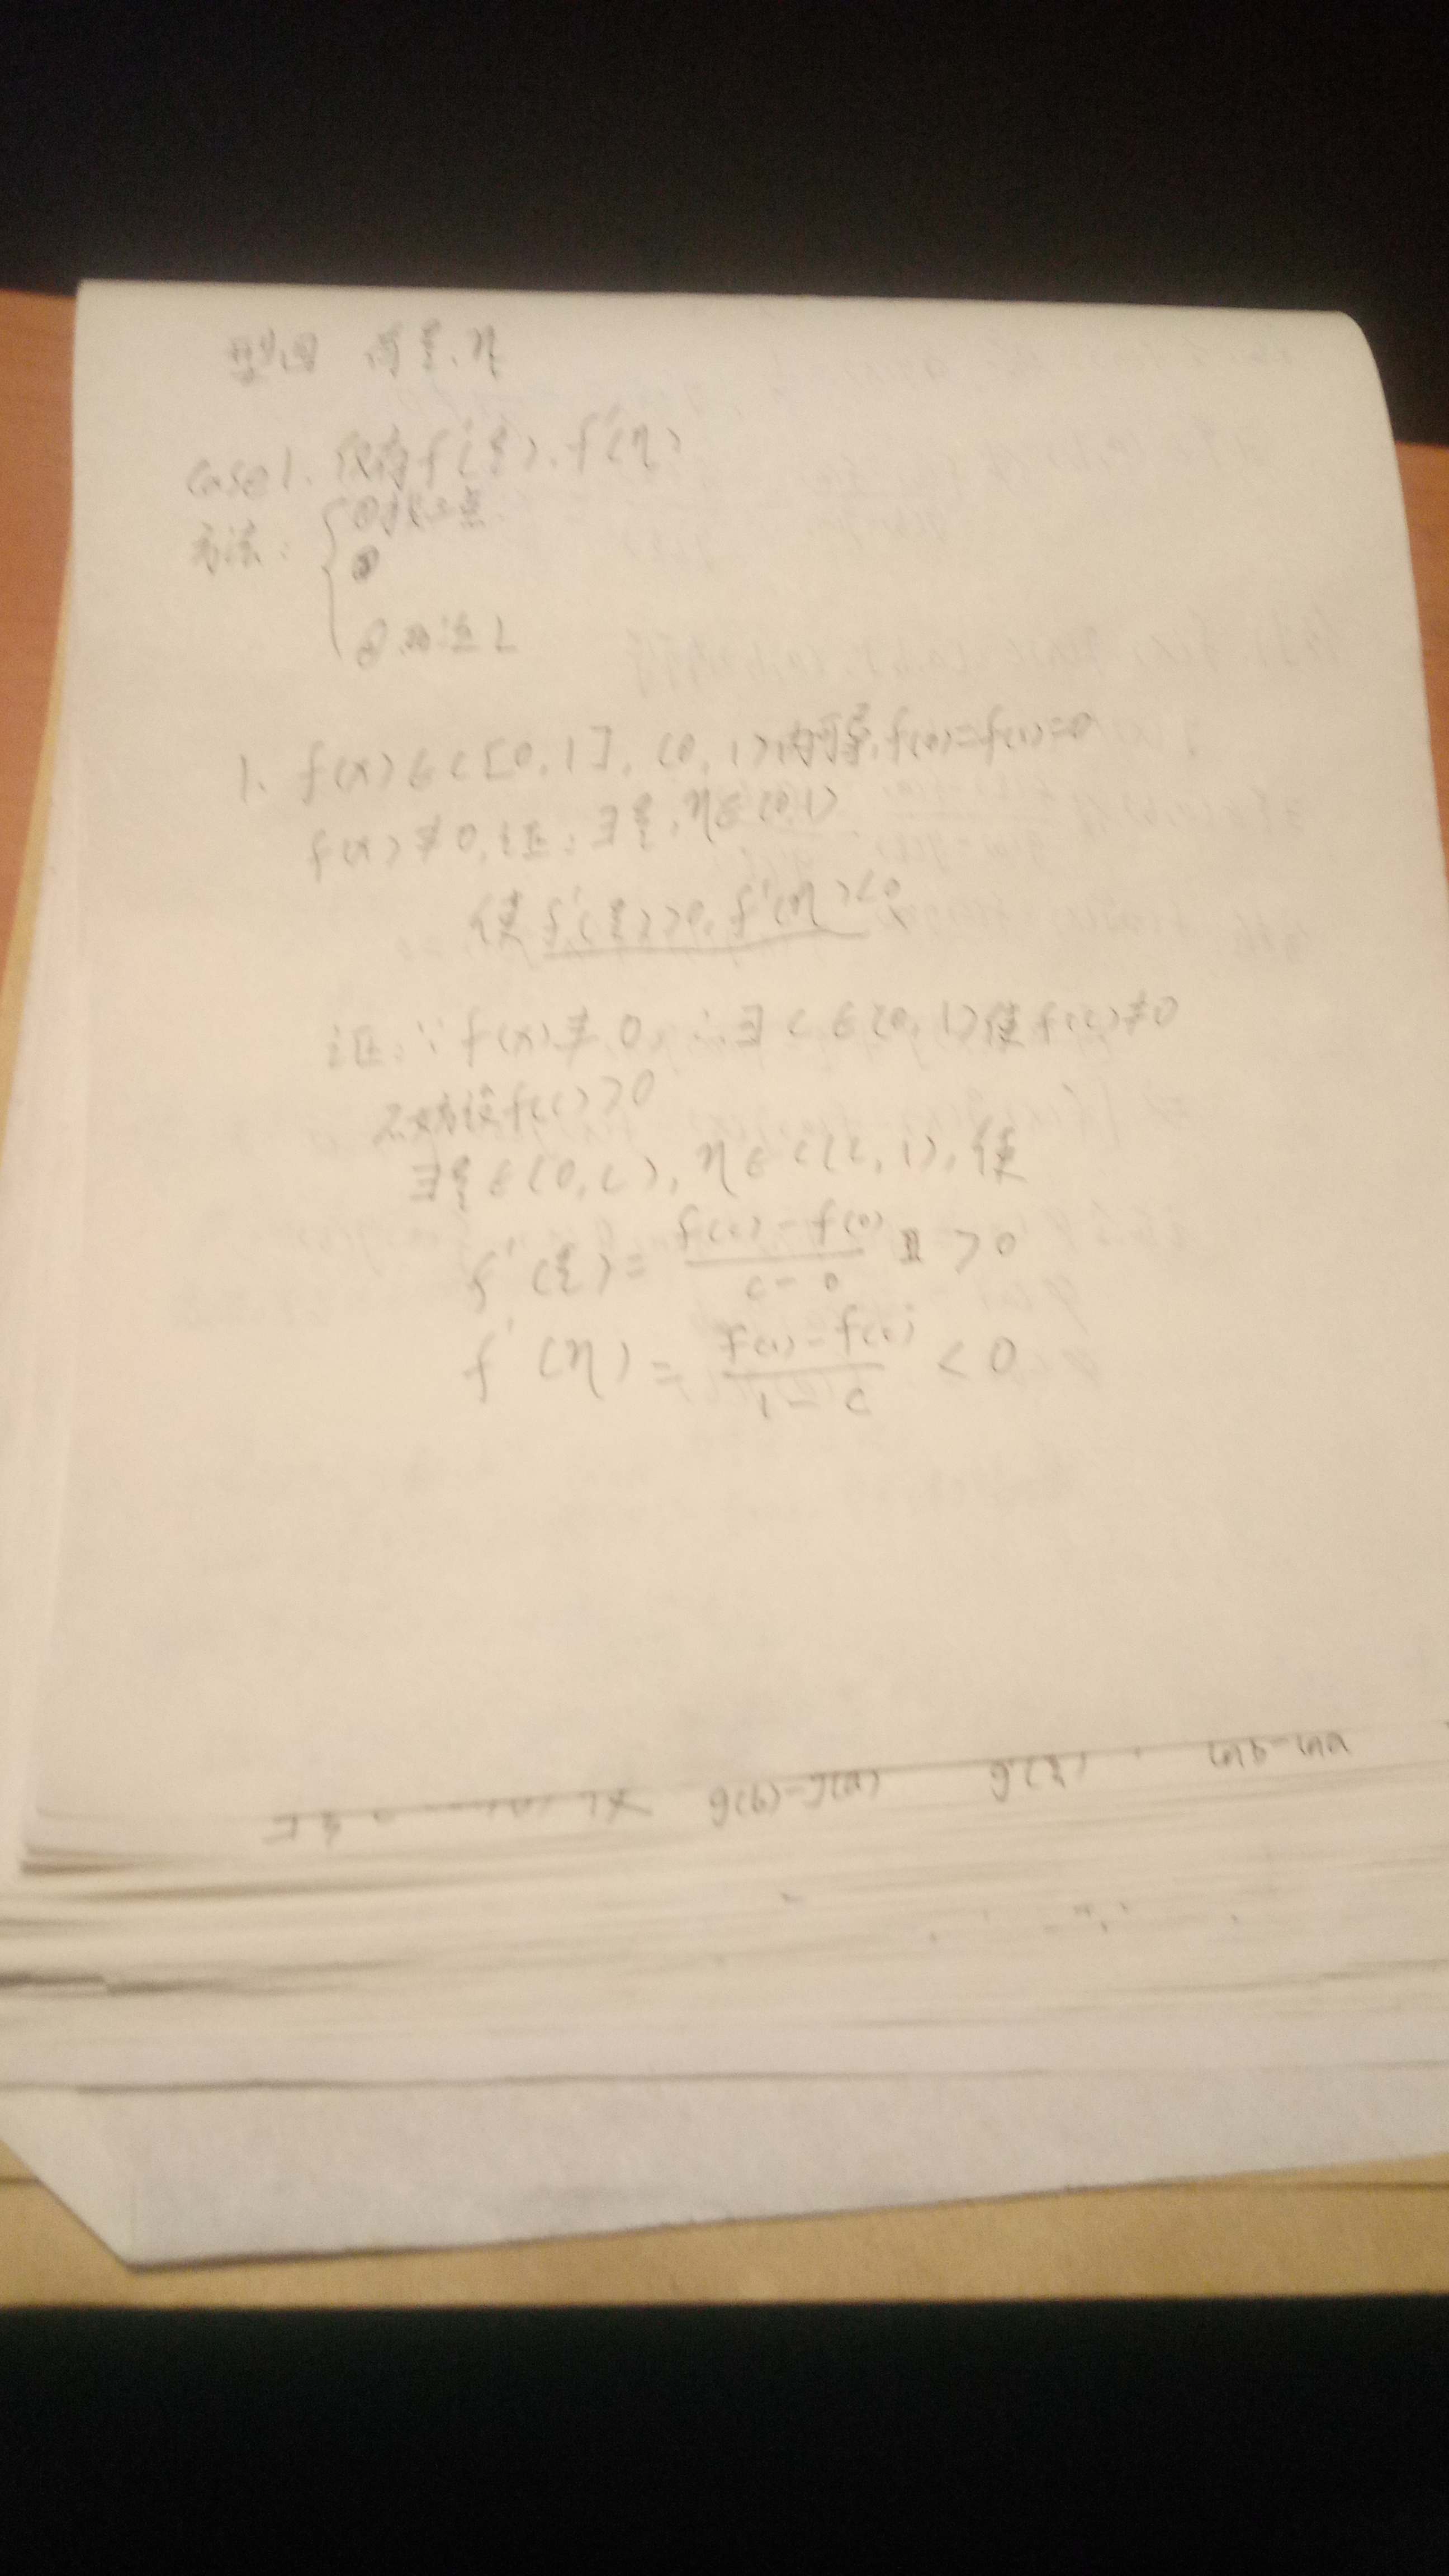 型四 有ξ.η
case1. 仅有f'(ξ).f'(η)
方法: ①找三点
②
② 两次L
1. f(x)∈C[0,1], (0,1)内可导,f(0)=f(1)=0
f(x)≢0,证:∃ξ,η∈(0,1)
使f'(ξ)>0,f'(η)<0
证:∵f(x)≢0,∴∃c∈(0,1)使f(c)≠0
不妨设f(c)>0
∃ξ∈(0,c),η∈(c,1),使
f'(ξ)= f(c)-f(0) / c-0 >0
f'(η)= f(1)-f(c) / 1-c <0
g(b)-g(a) g'(ξ) lnb-lna